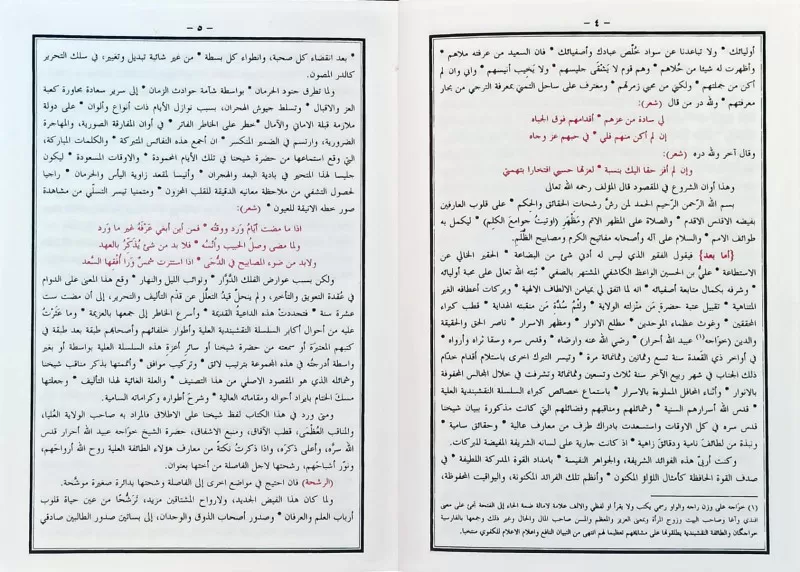 - ٤ -
أوليائك * ولا تباعدنا عن سواد خُلّص عبادك وأصفيائك * فان السعيد من عرفته ملاهم *
وأظهرت له شيئا من حُلاهم * وهم قوم لا يَشْقَى جليسهم * ولا يَخيب أنيسهم * واني وان لم
أكن من جملتهم * ولكني من محبي زمرتهم * ومعترف على ساحل التمني بمعرفة الترجي من بحار
معرفتهم * ولله در من قال (شعر):
لي سادة من عزهم * أقدامهم فوق الجباه
إن لم أكن منهم فلي * في حبهم عز وجاه
وقال آخر ولله دره (شعر):
وإن لم أفز حقا اليك بنسبة * لعزتها حسبي افتخارا بتهمتي
وهذا أوان الشروع في المقصود قال المؤلف رحمه الله تعالى
بسم الله الرّحمن الرّحيم الحمد لمن رشّ رشحات الحقائق والحِكم * على قلوب العارفين
بفيضه الاقدس الاقدم * والصلاة على المظهر الاتم ومَظْهَر (اوتيتُ جوامعَ الكَلِم) * ليكمل به
طوائف الامم * والسلام على آله وأصحابه مفاتيح الكرم ومصابيح الظُّلَم.
{أما بعد} فيقول الفقير الذي ليس له أدنى شئ من البضاعة * الحقير الخالي عن
الاستطاعة * علي بن الحسين الواعظ الكاشفي المشتهر بالصفي * ثبته الله تعالى على محبة أوليائه
* وشرفه بكمال متابعة أصفيائه * انه لما اتفق لي بميامن الالطاف الالهية * وبركات أعطافه الغير
المتناهية * تقبيل عتبة حضرة مَن مَنزلته الولاية * ولثم سُدَّة مَن منقبته الهداية * قطب كبراء
المحققين * وغوث عظماء الموحدين * مطلع الانوار * ومظهر الاسرار * ناصر الحق والحقيقة
والدين (خواجه(١) عبيد الله أحرار) رضي الله عنه وارضاه * وقدس سره وسقا ثراه وأرواه *
في أواخر ذي القعدة سنة تسع وثمانين وثمانمائة مرة * وتيسر التبرك اخرى باستلام أقدام خدّام
ذلك الجناب في شهر ربيع الآخر سنة ثلاث وتسعين وثمانمائة وتشرفت في خلال المجالس المحفوفة
بالانوار * وأثناء المحافل المملوءة بالاسرار * باستماع خصائص كبراء السلسلة النقشبندية العلية
* قدس الله أسرارهم السنية * وشمائلهم ومناقبهم وفضائلهم التي كانت مذكورة ببيان شيخنا
قدس سره في كل الاوقات واستسعدت بادراك طرف من معارف عالية * وحقائق سامية *
ونبذة من لطائف نامية ودقائق زاهية * اذ كانت جارية على لسانه الشريفة المفيضة للبركات.
وكنت أربّي هذه الفوائد الشريفة، والجواهر النفيسة * بامداد القوة المدركة اللطيفة * في
صدف القوة الحافظة كأمثال اللؤلؤ المكنون * وأنظم تلك الفرائد المكنونة، واليواقيت المحفوظة،
(١) خواجه على وزن راجه والواو رسمي يكتب ولا يقرأ او لفظي والالف علامة لامالة ضمة الخاء إلى الفتحة نحئ على معنى
افندي وآغا وصاحب البيت وزوج المرأة وتعنى العزيز والمعظم والمسن صاحب المال والحال وغير ذلك وجمعها بالفارسية
خواجكان والطائفة النقشبندية يطلقونها على مشائخهم تعظيما لهم انتهى من التبيان النافع واعلام الاعلام للكفوي منتخبا.
- ٥ -
* بعد انقضاء كل صحبة، وانطواء كل بسطة * من غير شائبة تبديل وتغيير، في سلك التحرير
كالدر المصون.
ولما تطرق جنود الحرمان * بواسطة شآمة حوادث الزمان * إلى سرير سعادة محاورة كعبة
العز والاقبال * وتسلط جيوش الهجران، بسبب نوازل الأيام ذات أنواع وألوان * على دولة
ملازمة قبلة الاماني والآمال *خطر على الخاطر الفاتر * في أوان المفارقة الصورية، والمهاجرة
الضرورية، وارتسم في الضمير المنكسر * ان أجمع هذه النفائس المتبركة * والكلمات المباركة،
التي وقع استماعها من حضرة شيخنا في تلك الأيام المحمودة * والاوقات المسعودة * ليكون
جليسا لهذا المتحير في بادية البعد والهجران * وأنيسا لمقعد زاوية اليأس والحرمان * راجيا
لحصول التشفي من ملاحظة معانيه الدقيقة للقلب المحزون * ومتمنيا تيسر التسلّي من مشاهدة
صور خطه الانيقة للعيون * (شعر):
اذا ما مضت أيّامُ وَرد ووقتُه * فمن أين أبغي عَرْفَهُ غير ما وَرد
ولما مضى وصلُ الحبيب وأُنْسُه * فلا بد من شئ يُذكّرُ بالعهد
ولابد من ضوء المصابيح في الدُّجَى * اذا استترت شمسٌ وَرَا أُفْقِها السعد
ولكن بسبب عوارض الفلك الدّوّار * ونوائب الليل والنهار * وقع هذا المعنى على الدوام
في عُقدة التعويق والتأخير، ولم ينحلّ قيدُ التعلّل عن قدَم التأليف والتحرير، إلى أن مضت ست
عشرة سنة * فتجددتْ هذه الداعية القديمة * وأسرع الخاطر إلى جمعها بالعزيمة * وما عَثَرْتُ
عليه من أحوال أكابر السلسلة النقشبندية العلية وأطوار خلفائهم وأصحابهم طبقة بعد طبقة في
كتبهم المعتبَرة أو سمعته من حضرة شيخنا أو سائرِ أعِزة هذه السلسلة بلا واسطة أو بغير
واسطة أدرجتُه في هذه المجموعة بترتيب لائق * وتركيب موافق * وأتممتها بذكر مناقب شيخنا
وشمائله الذي هو المقصود الاصلي من هذا التصنيف * والعلة الغائية لهذا التأليف * وجعلتها
مسكَ الختام بايراد أحواله ومقاماته العالية * وشرح أطواره وكراماته السامية.
ومتى ورد في هذا الكتاب لفظ شيخنا على الاطلاق فالمراد به صاحب الولاية العُليا،
والمناقب العُظْمَى، قطب الآفاق، ومنبع الاشفاق، حضرة الشيخ خواجه عبيد الله أحرار قدس
الله سرَّه، وأعلى ذكرَه، واذا ذكرتُ نكتةً من معارف هؤلاء الطائفة العلية روح الله أرواحَهم،
ونوّر أشباحَهم، رشحتها لاجل الفاصلة من أختها بعنوان.
(الرشحة) فان احتيج في مواضع اخرى إلى الفاصلة وشحتها بدائرة صغيرة موشّحة.
ولما كان هذا الفيض الجديد، ولارواح المشتاقين مزيد، تَرَشُّحًا من عين حياة قلوب
أرباب العلم والعرفان * وصدور أصحاب الذوق والوجدان، إلى بساتين صدور الطالبين صادقي